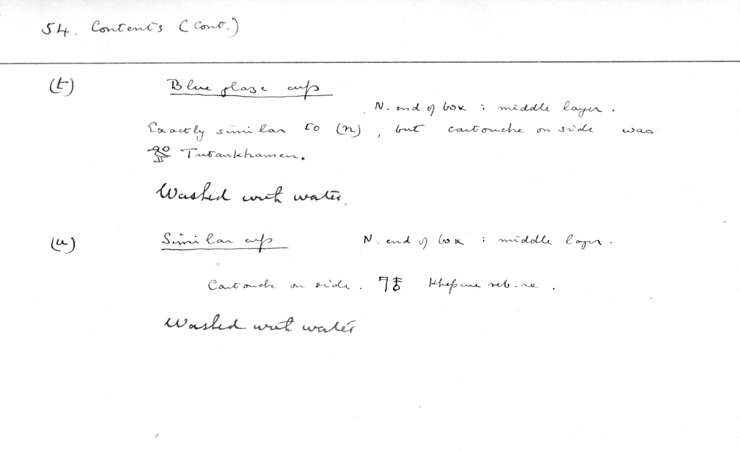 54. Contents (Cont.)
(t) Blue glaze cup
N. end of box : middle layer.
Exactly similar to (n), but cartouche on side was
Tutankhamen.
Washed with water.
(u) Similar cup N. end of box : middle layer.
Cartouche on side. Kheperu neb-re.
Washed with water